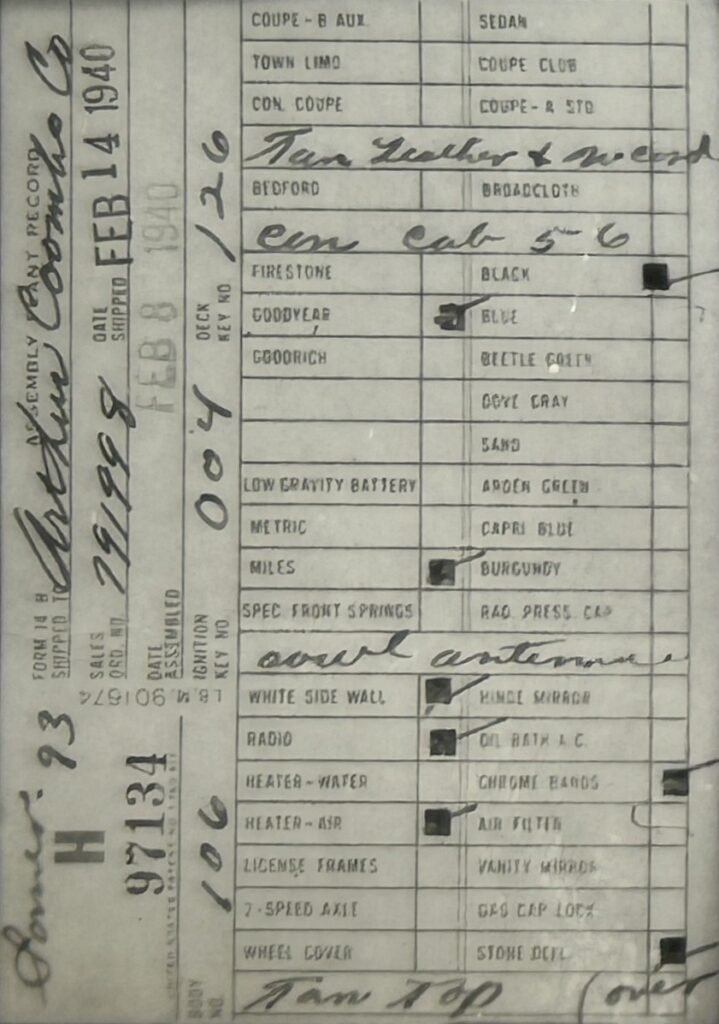 FORM 14 B ASSEMBLY PLANT RECORD
SHIPPED TO Arthur Coombs Co
SALES ORD. NO. 791998 DATE SHIPPED FEB 14 1940
DATE ASSEMBLED FEB 8 1940
IGNITION KEY NO. 004 DECK KEY NO 126
93
H
97134
L8.M.901674
BODY NO. 106
COUPE - B AUX. SEDAN
TOWN LIMO COUPE CLUB
CON. COUPE COUPE - A STD
Tan Leather &
BEDFORD BROADCLOTH
Con Cab 5-6
FIRESTONE BLACK
GOODYEAR BLUE
GOODRICH BEETLE GREEN
DOVE GRAY
SAND
LOW GRAVITY BATTERY ARDEN GREEN
METRIC CAPRI BLUE
MILES BURGUNDY
SPEC. FRONT SPRINGS RAD. PRESS. CAP
cowl antenna
WHITE SIDE WALL HINGE MIRROR
RADIO OIL BATH A.C.
HEATER - WATER CHROME BANDS
HEATER - AIR AIR FILTER
LICENSE FRAMES VANITY MIRROR
2 - SPEED AXLE GAS CAP LOCK
WHEEL COVER STONE DEFL.
Tan Top (over